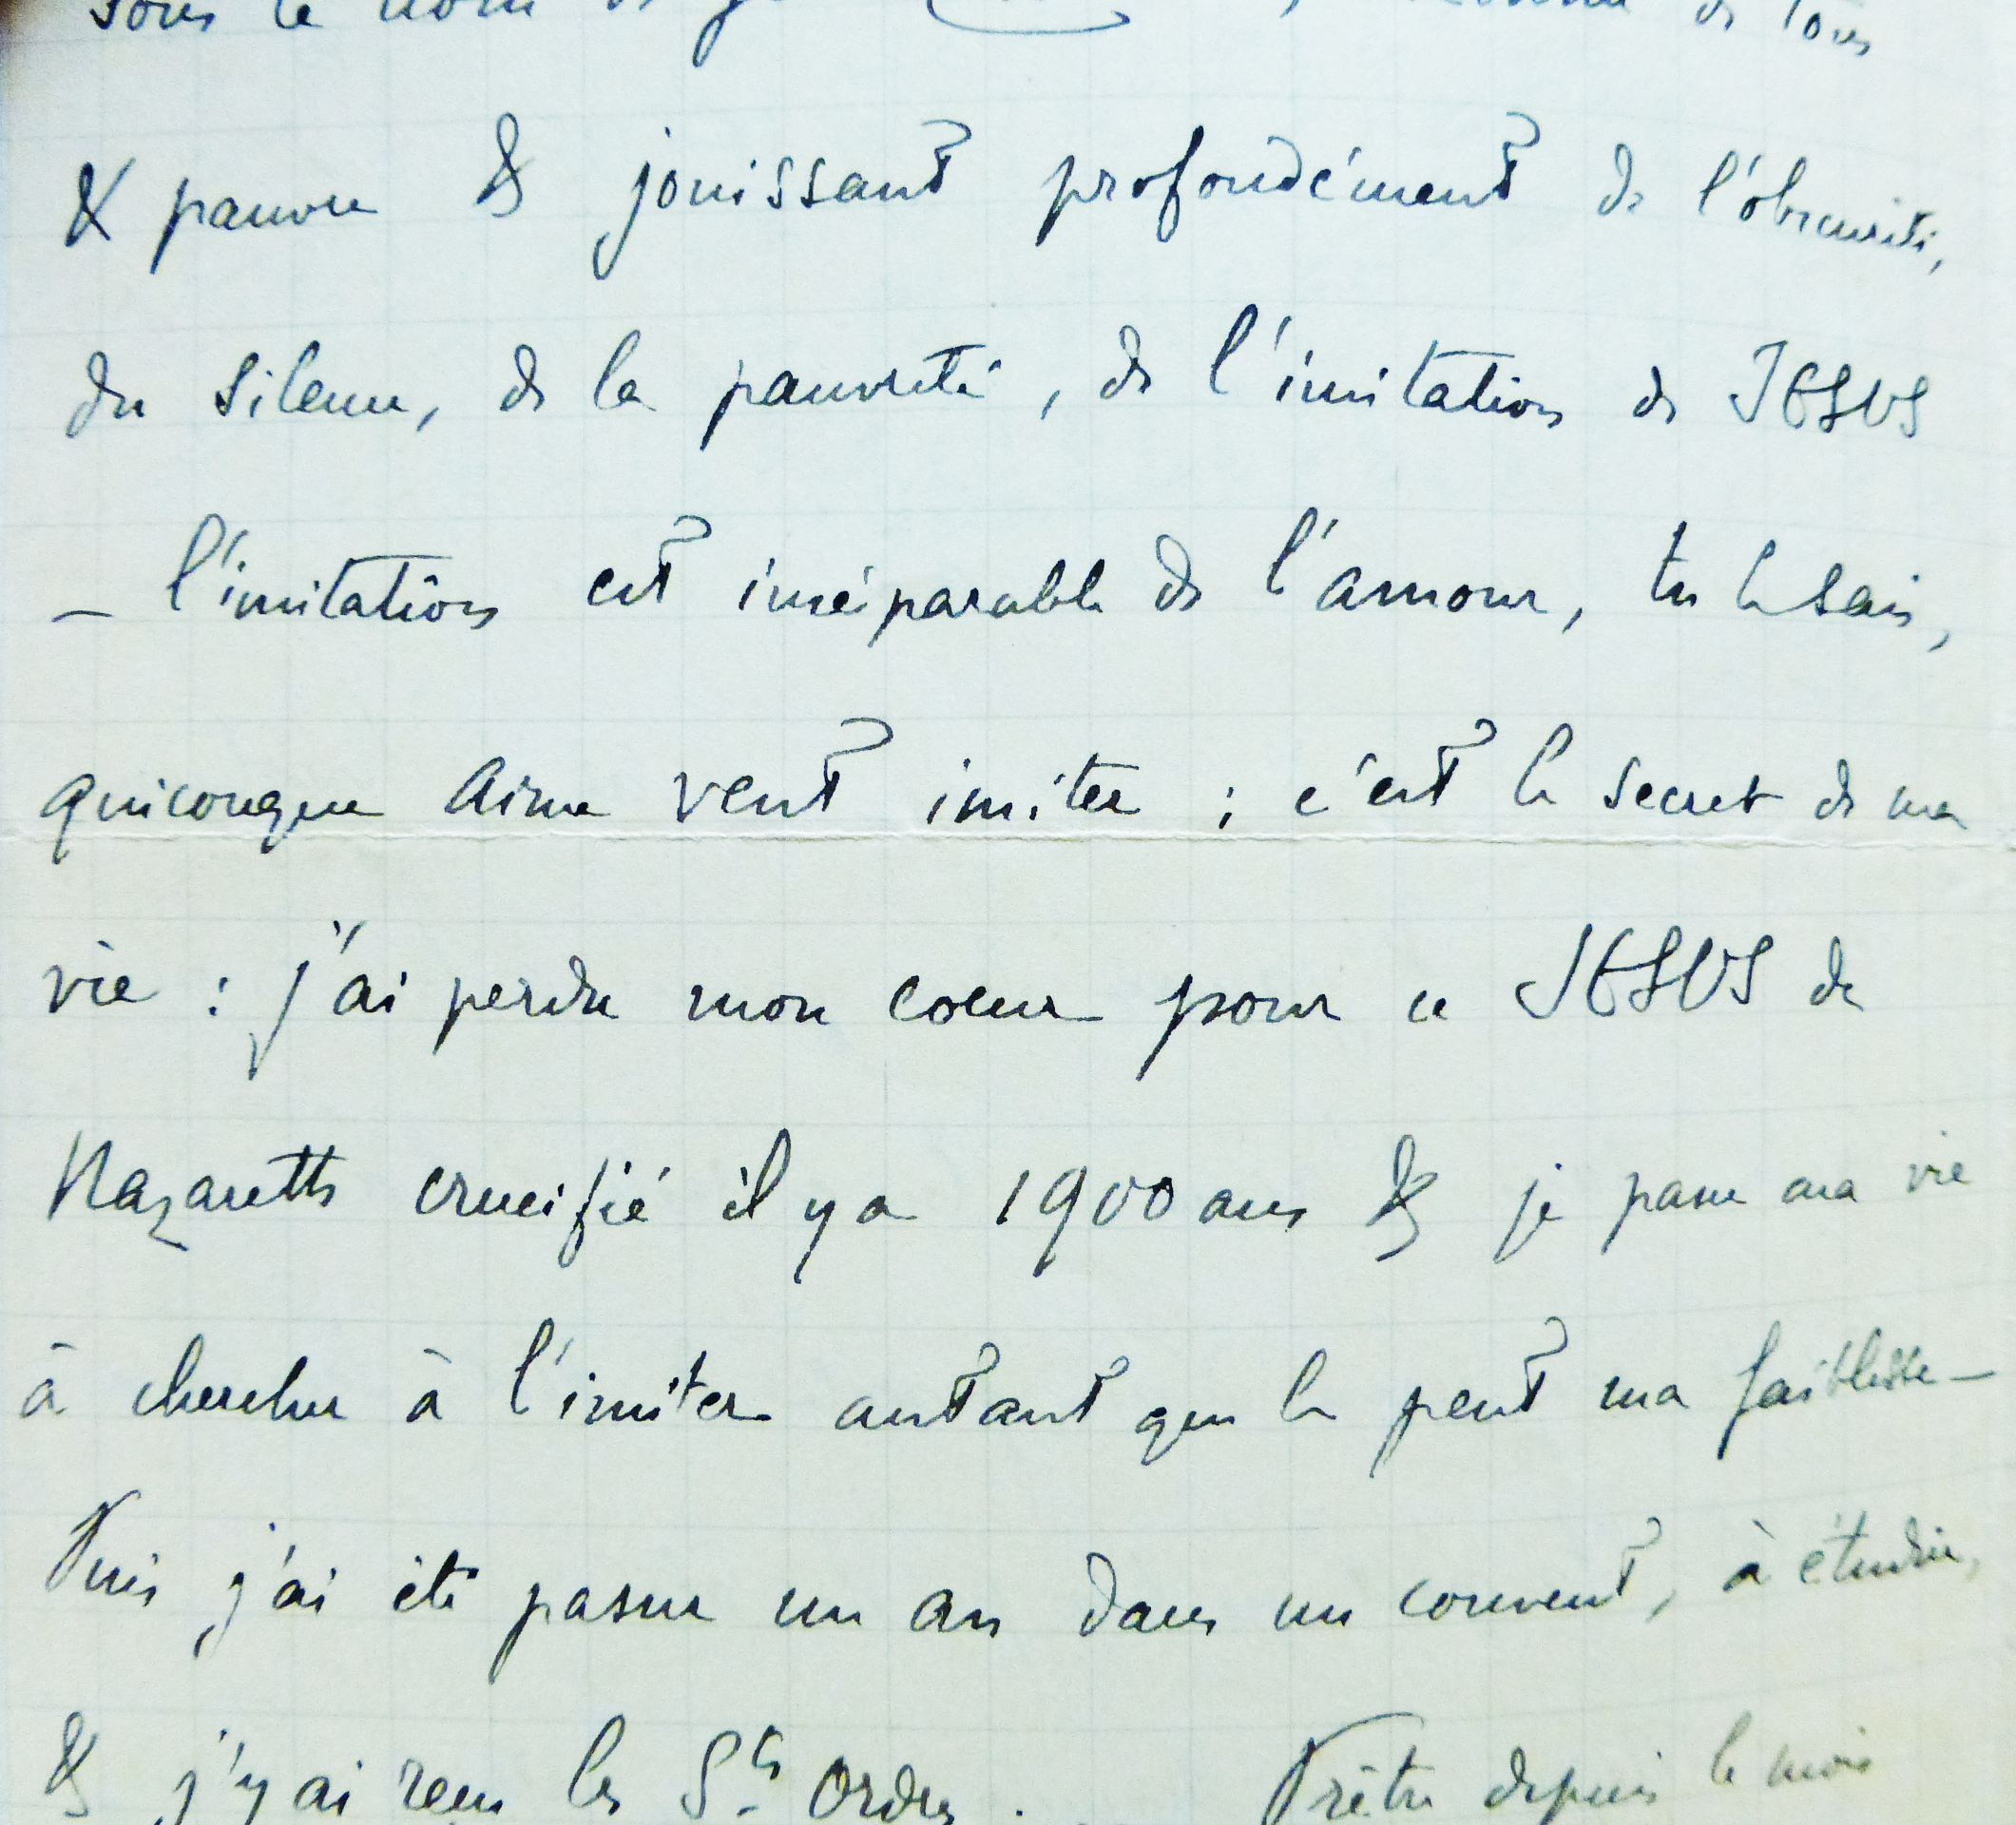 sous le nom de de tous
& pauvre & jouissant profondément de l'obscurité,
du silence, de la pauvreté, de l'imitation de JESUS
_ l'imitation est inséparable de l'amour, tu le sais,
quiconque aime veut imiter ; c'est le secret de ma
vie : j'ai perdu mon coeur pour ce JESUS de
Nazareth crucifié il y a 1900 ans & je passe ma vie
à chercher à l'imiter autant que le peut ma faiblesse _
Puis j'ai été passer un an dans un couvent, à étudier,
& j'y ai reçu les Sts Ordres . _ Prêtre depuis le mois